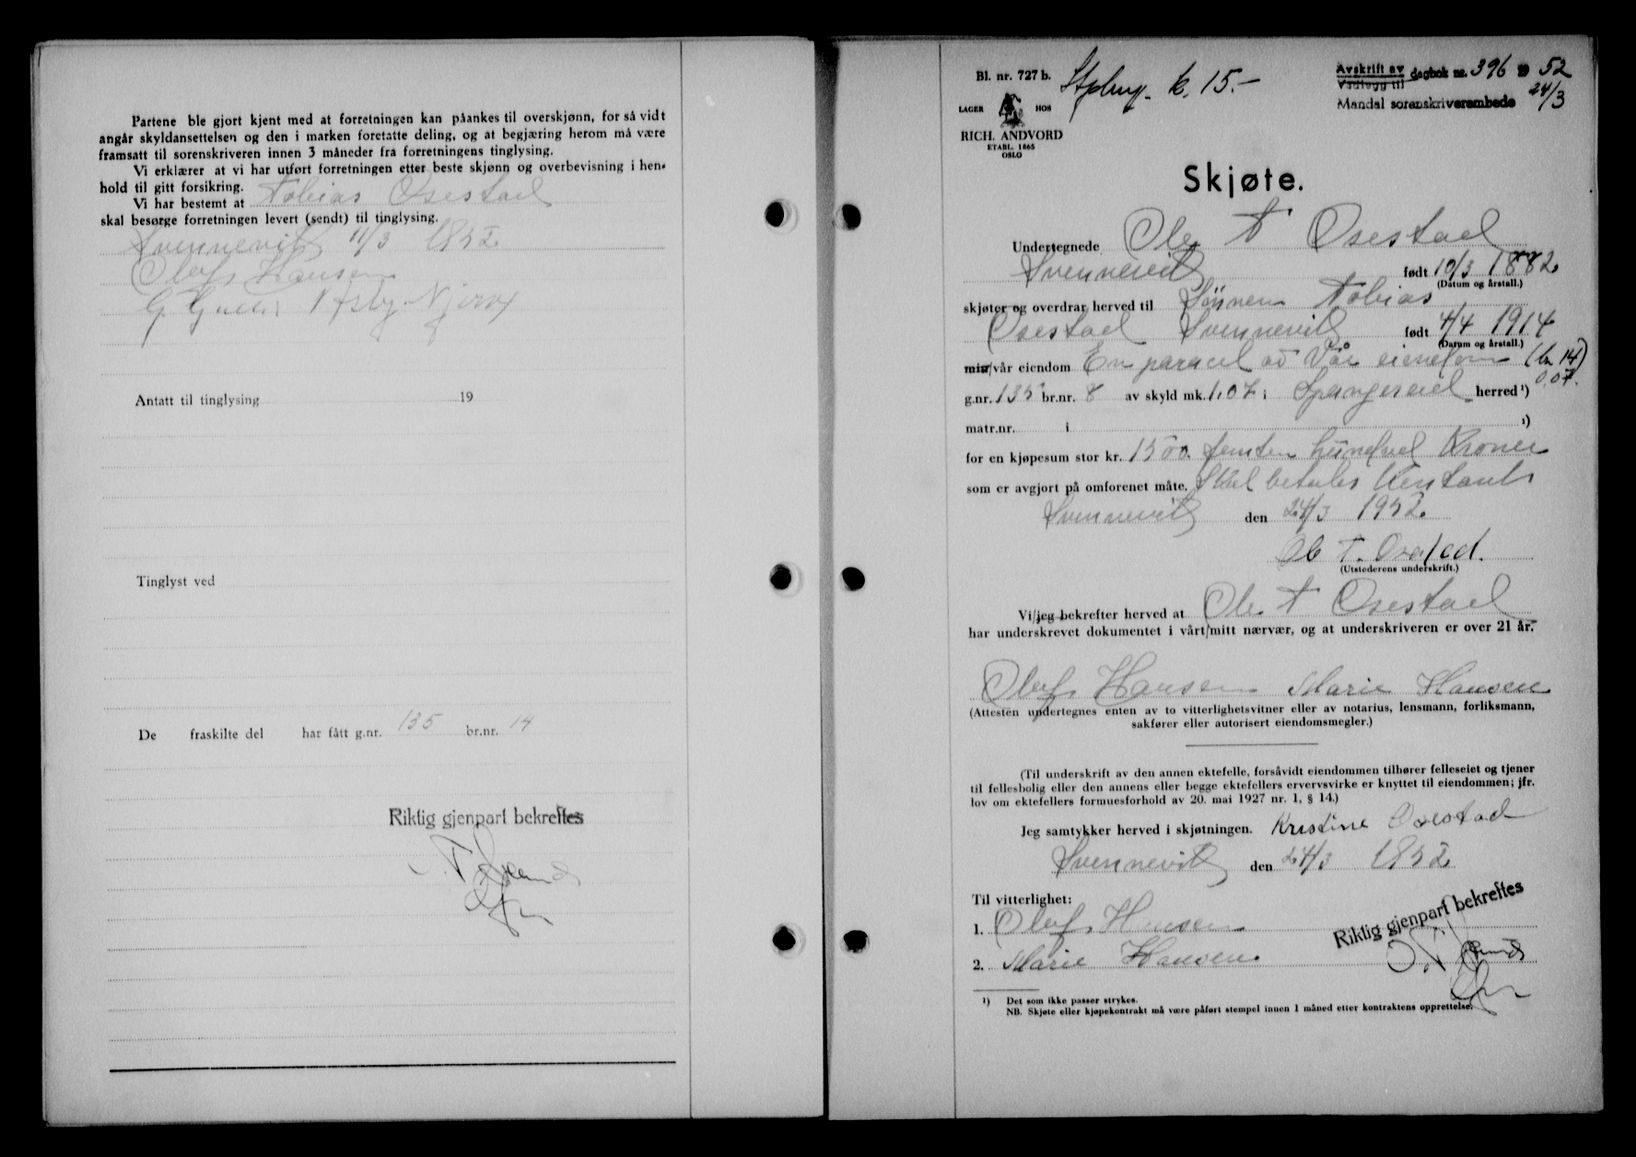 Partene ble gjort kjent med at forretningen kan påankes til overskjønn, for så vidt
angår skyldansettelsen og den i marken foretatte deling, og at begjæring herom må være
framsatt til sorenskriveren innen 3 måneder fra forretningens tinglysing.
Vi erklærer at vi har utført forretningen etter beste skjønn og overbevisning i hen-
hold til gitt forsikring.
Vi har bestemt at Tobias Osestad
skal besørge forretningen levert (sendt) til tinglysing.
Svennevik 11/3 1952
Olaf Hansen
Antatt til tinglysing 19
Tinglyst ved
De fraskilte del har fått g.nr. 135 br.nr. 14
Riktig gjenpart bekreftes
Bl. nr. 727 b.
k. 15.-
Avskrift av dagbok nr. 396 19 52
Vedlegg til 24/3
Mandal sorenskriverembede
LAGER HOS
RICH. ANDVORD
ETABL. 1865
OSLO
Skjøte.
Undertegnede Ole T Osestad
Svennevik født 10/3 1882
(Datum og årstall.)
skjøter og overdrar herved til Sønnen Tobias
Osestad Svennevik født 4/4 1914
(Datum og årstall.)
min/vår eiendom En parscel av Vår eiendom (bn 14)
g.nr. 135 br.nr. 8 av skyld mk. 1.07 i Spangereid herred ¹) 0.07.
matr.nr. i ¹)
for en kjøpesum stor kr. 1500 femten hundred Kroner
som er avgjort på omforenet måte. Skal betales Kontant
Svennevik den 24/3 1952.
Ole T. Osestad.
(Utstederens underskrift.)
Vi/jeg bekrefter herved at Ole T Osestad
har underskrevet dokumentet i vårt/mitt nærvær, og at underskriveren er over 21 år.
Olaf Hansen Marie Hansen
(Attesten undertegnes enten av to vitterlighetsvitner eller av notarius, lensmann, forliksmann,
sakfører eller autorisert eiendomsmegler.)
(Til underskrift av den annen ektefelle, forsåvidt eiendommen tilhører felleseiet og tjener
til fellesbolig eller den annens eller begge ektefellers ervervsvirke er knyttet til eiendommen; jfr.
lov om ektefellers formuesforhold av 20. mai 1927 nr. 1, § 14.)
Jeg samtykker herved i skjøtningen. Kristine Osestad
Svennevik den 24/3 1952
Til vitterlighet:
1. Olaf Hansen
2. Marie Hansen
Riktig gjenpart bekreftes
¹) Det som ikke passer strykes.
NB. Skjøte eller kjøpekontrakt må være påført stempel innen 1 måned etter kontraktens opprettelse.